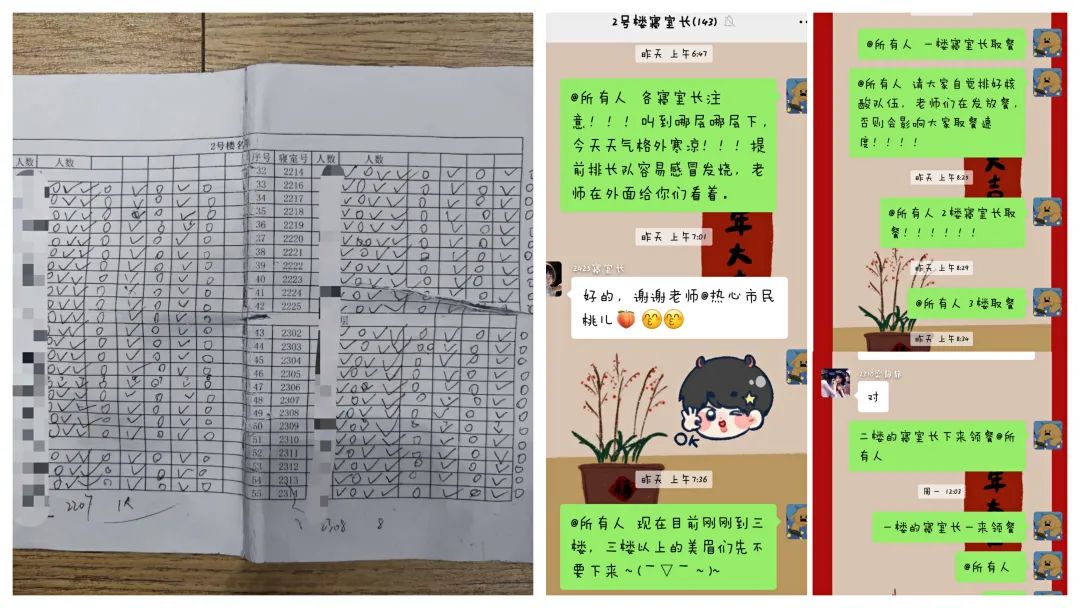 2号楼名
人数 人数
序号 寝室号 人数 人数
32 2214
33 2216
34 2217
35 2218
36 2219
37 2220
38 2221
39 2222
40 2223
41 2224
42 2225
层
43 2302
44 2303
45 2304
46 2305
47 2306
48 2307
49 2308
50 2309
51 2310
52 2311
53 2312
54 2313
55 2314
2207
2308 8
2号楼寝室长(143)
昨天 上午6:47
@所有人 各寝室长注
意！！！叫到哪层哪层下,
今天天气格外寒凉！！！提
前排长队容易感冒发烧，老
师在外面给你们看着。
昨天 上午7:01
2423寝室长
好的，谢谢老师@热心市民
桃儿🍑😊😊
OK
年大吉
福
昨天 上午7:36
@所有人 现在目前刚刚到三
楼，三楼以上的美眉们先不
要下来～(￣▽￣～)~
@所有人 一楼寝室长取餐
@所有人 请大家自觉排好核
酸队伍，老师们在发放餐，
否则会影响大家取餐速
度！！！！
大吉
昨天 上午8:23
@所有人 2楼寝室长取
餐！！！！！！
昨天 上午8:29
@所有人 3楼取餐
昨天 上午8:34
对
二楼的寝室长下来领餐@所
有人
年大吉
周一 12:03
一楼的寝室长一来领餐
@所有人